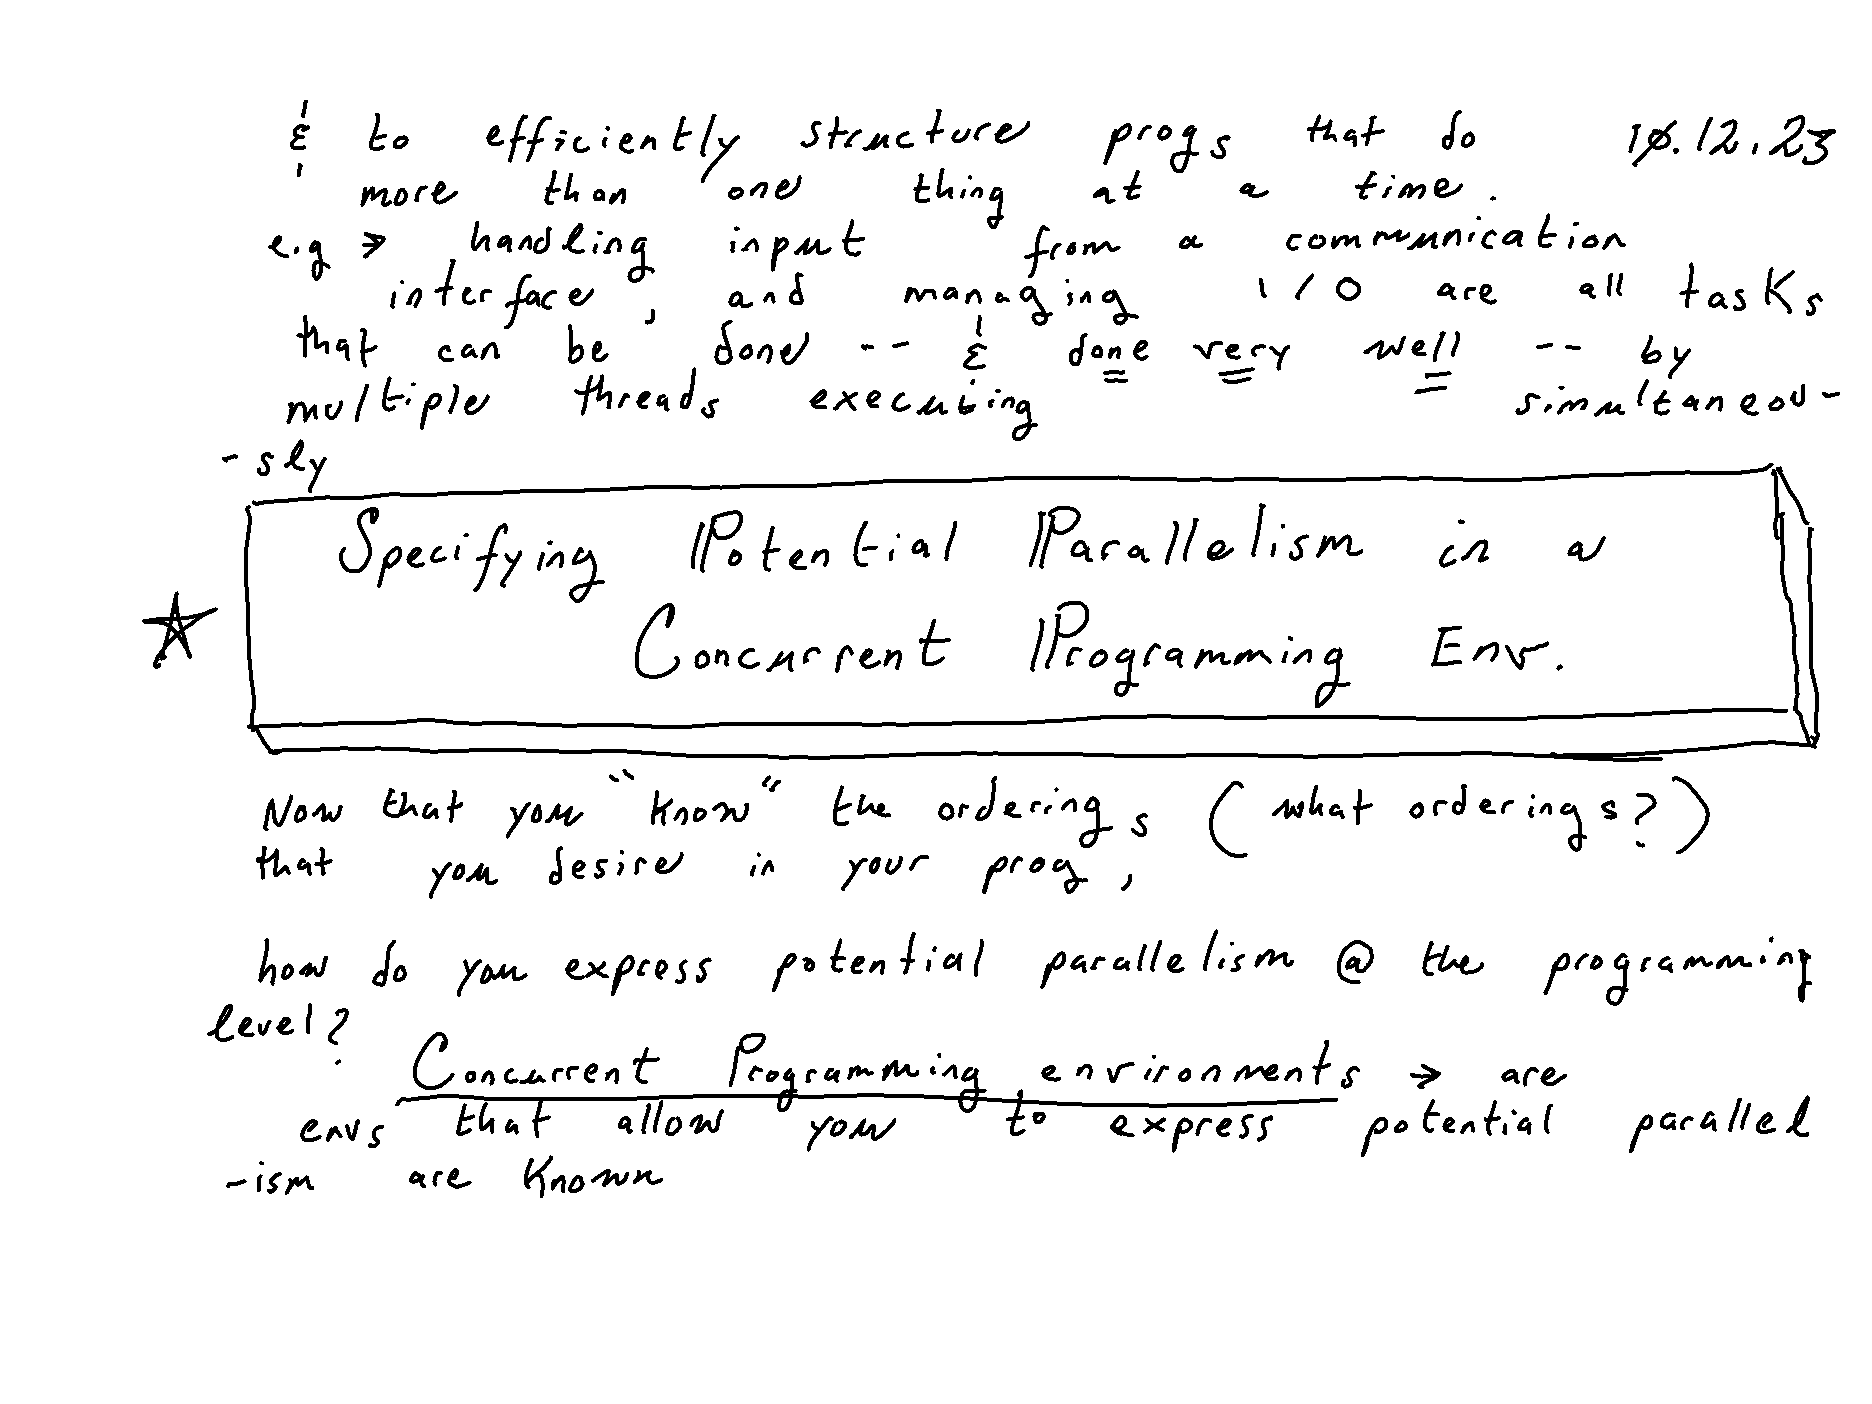 & to efficiently structure progs that do 10.12.23
more than one thing at a time.
e.g → handling input from a communication
interface, and managing I/O are all tasks
that can be done -- & done very well -- by
multiple threads executing simultaneou-
-sly
Specifying Potential Parallelism in a
Concurrent Programming Env.
Now that you "know" the orderings (what orderings?)
that you desire in your prog,
how do you express potential parallelism @ the programming
level?
Concurrent Programming environments → are
envs that allow you to express potential parallel
-ism are known